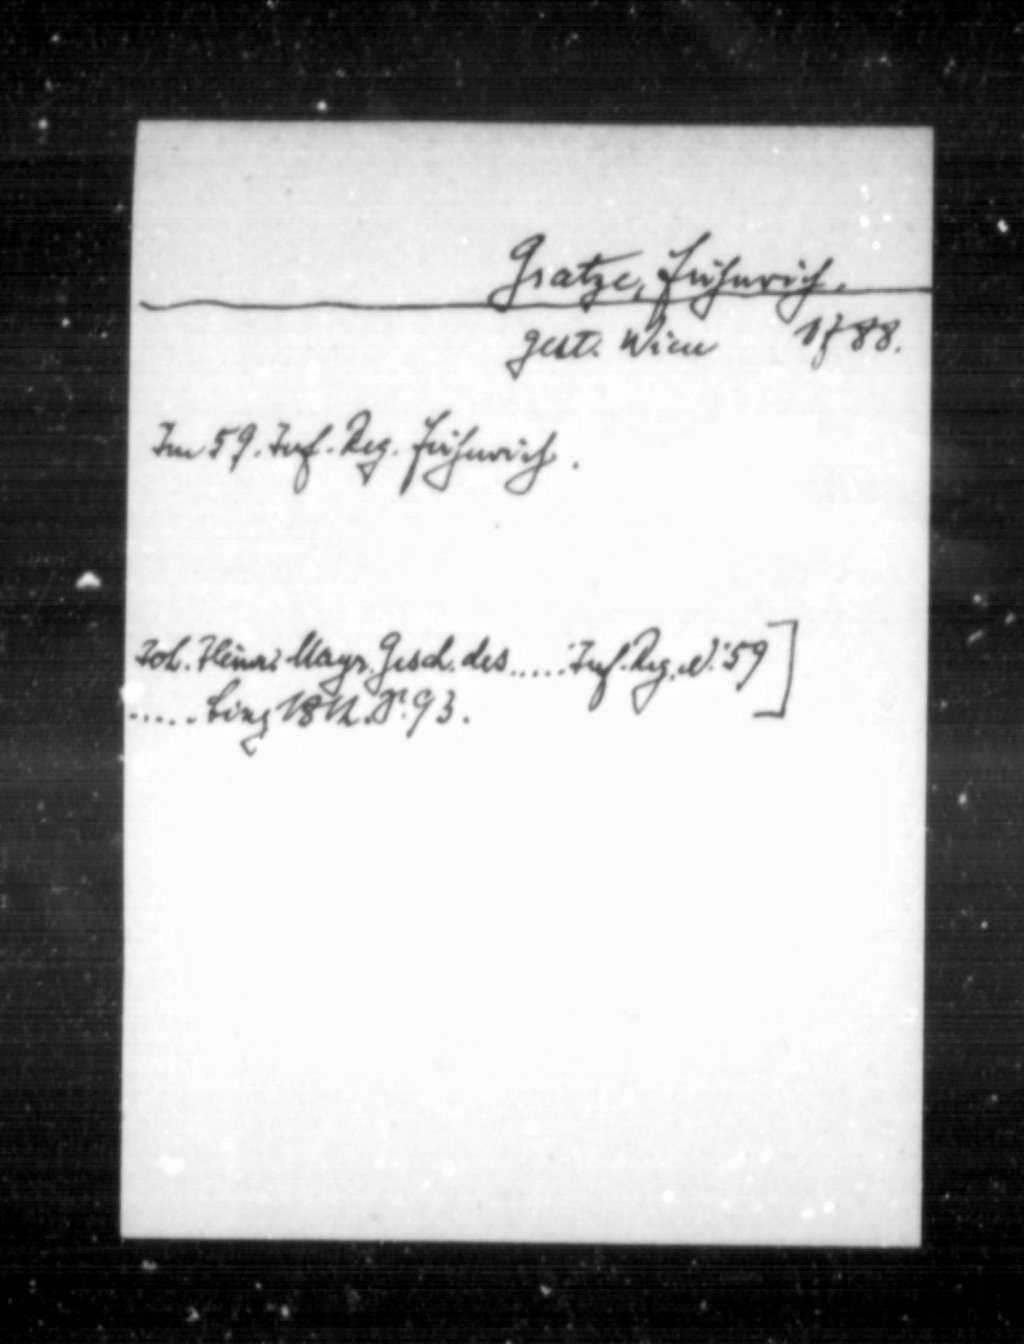 Gratze, Fähnrich.
gest. Wien 1788.
Im 59. Inf. Reg. Fähnrich.
Joh. Heinr. Mayr. Gesch. des ..... Inf. Reg. N. 59]
..... Linz 1812. S. 93.